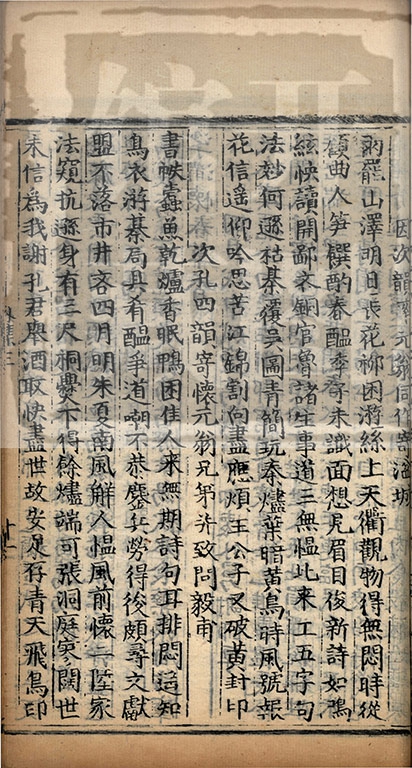 因次韻謝元翁同作寄湓城
雨罷山澤明日長花柳困游絲上天衢觀物得無悶時從
顧曲人笋饌酌春醞李寄未識面想見眉目俊新詩如鳴
絃快讀開鄙吝銅官魯諸生事道三無慍比來工五字句
法妙何遜枯棊覆吳圖青簡玩秦燼葉暗黃鳥時風號報
花信遥仰吟思苦江錦割向盡應煩王公子又破黃封印
次孔四韻寄懷元翁兄弟并致問毅甫
書帙蠹魚乾爐香眠鴨困佳人來無期詩句耳排悶遥知
烏衣游棊局具肴醞爭道嘲不恭鏖兵勞得俊頗尋文獻
盟不落市井吝四月明朱夏南風解人慍風前懷二陸家
法窺抗遜身有三尺桐爨下得餘燼端可張洞庭寥闊世
未信為我謝孔君舉酒取快盡世故安足存青天飛鳥印